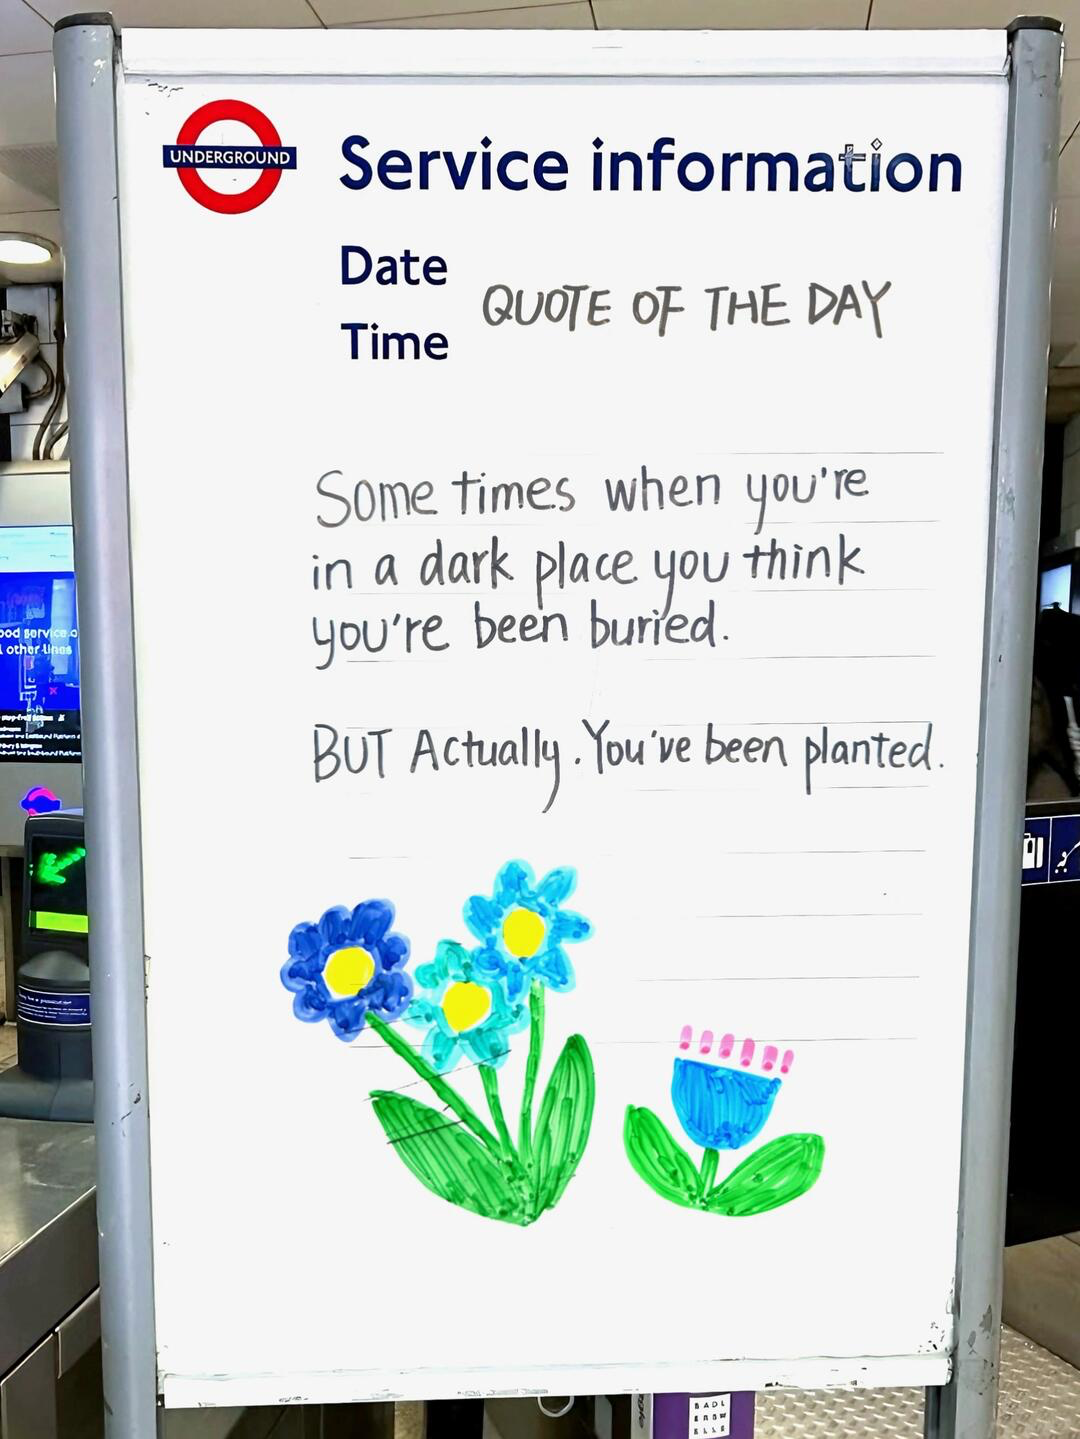 UNDERGROUND
Service information
Date
QUOTE OF THE DAY
Time
Some times when you're
in a dark place you think
you're been buried.
BUT Actually. You've been planted.
ood service o
other lines